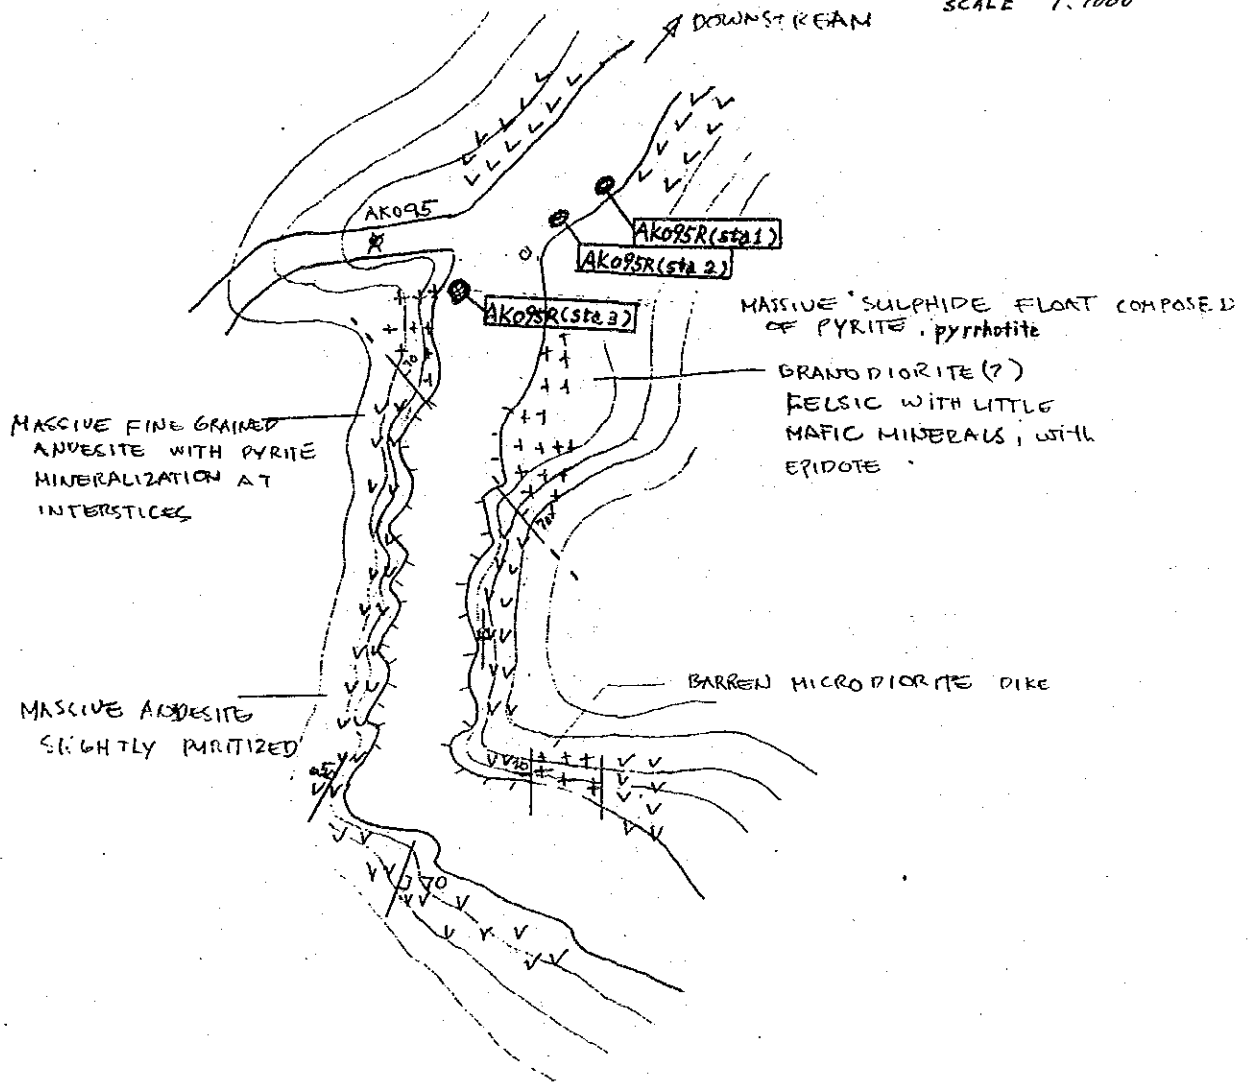 SCALE 1:1000
DOWNSTREAM
AK095
AK095R(sta 1)
AK095R(sta 2)
AK095R(sta 3)
MASSIVE SULPHIDE FLOAT COMPOSED
OF PYRITE, pyrrhotite
GRANODIORITE(?)
FELSIC WITH LITTLE
MAFIC MINERALS, with
EPIDOTE
70
MASSIVE FINE GRAINED
ANDESITE WITH PYRITE
MINERALIZATION AT
INTERSTICES
70
BARREN MICRODIORITE DIKE
MASSIVE ANDESITE
SLIGHTLY PYRITIZED
70